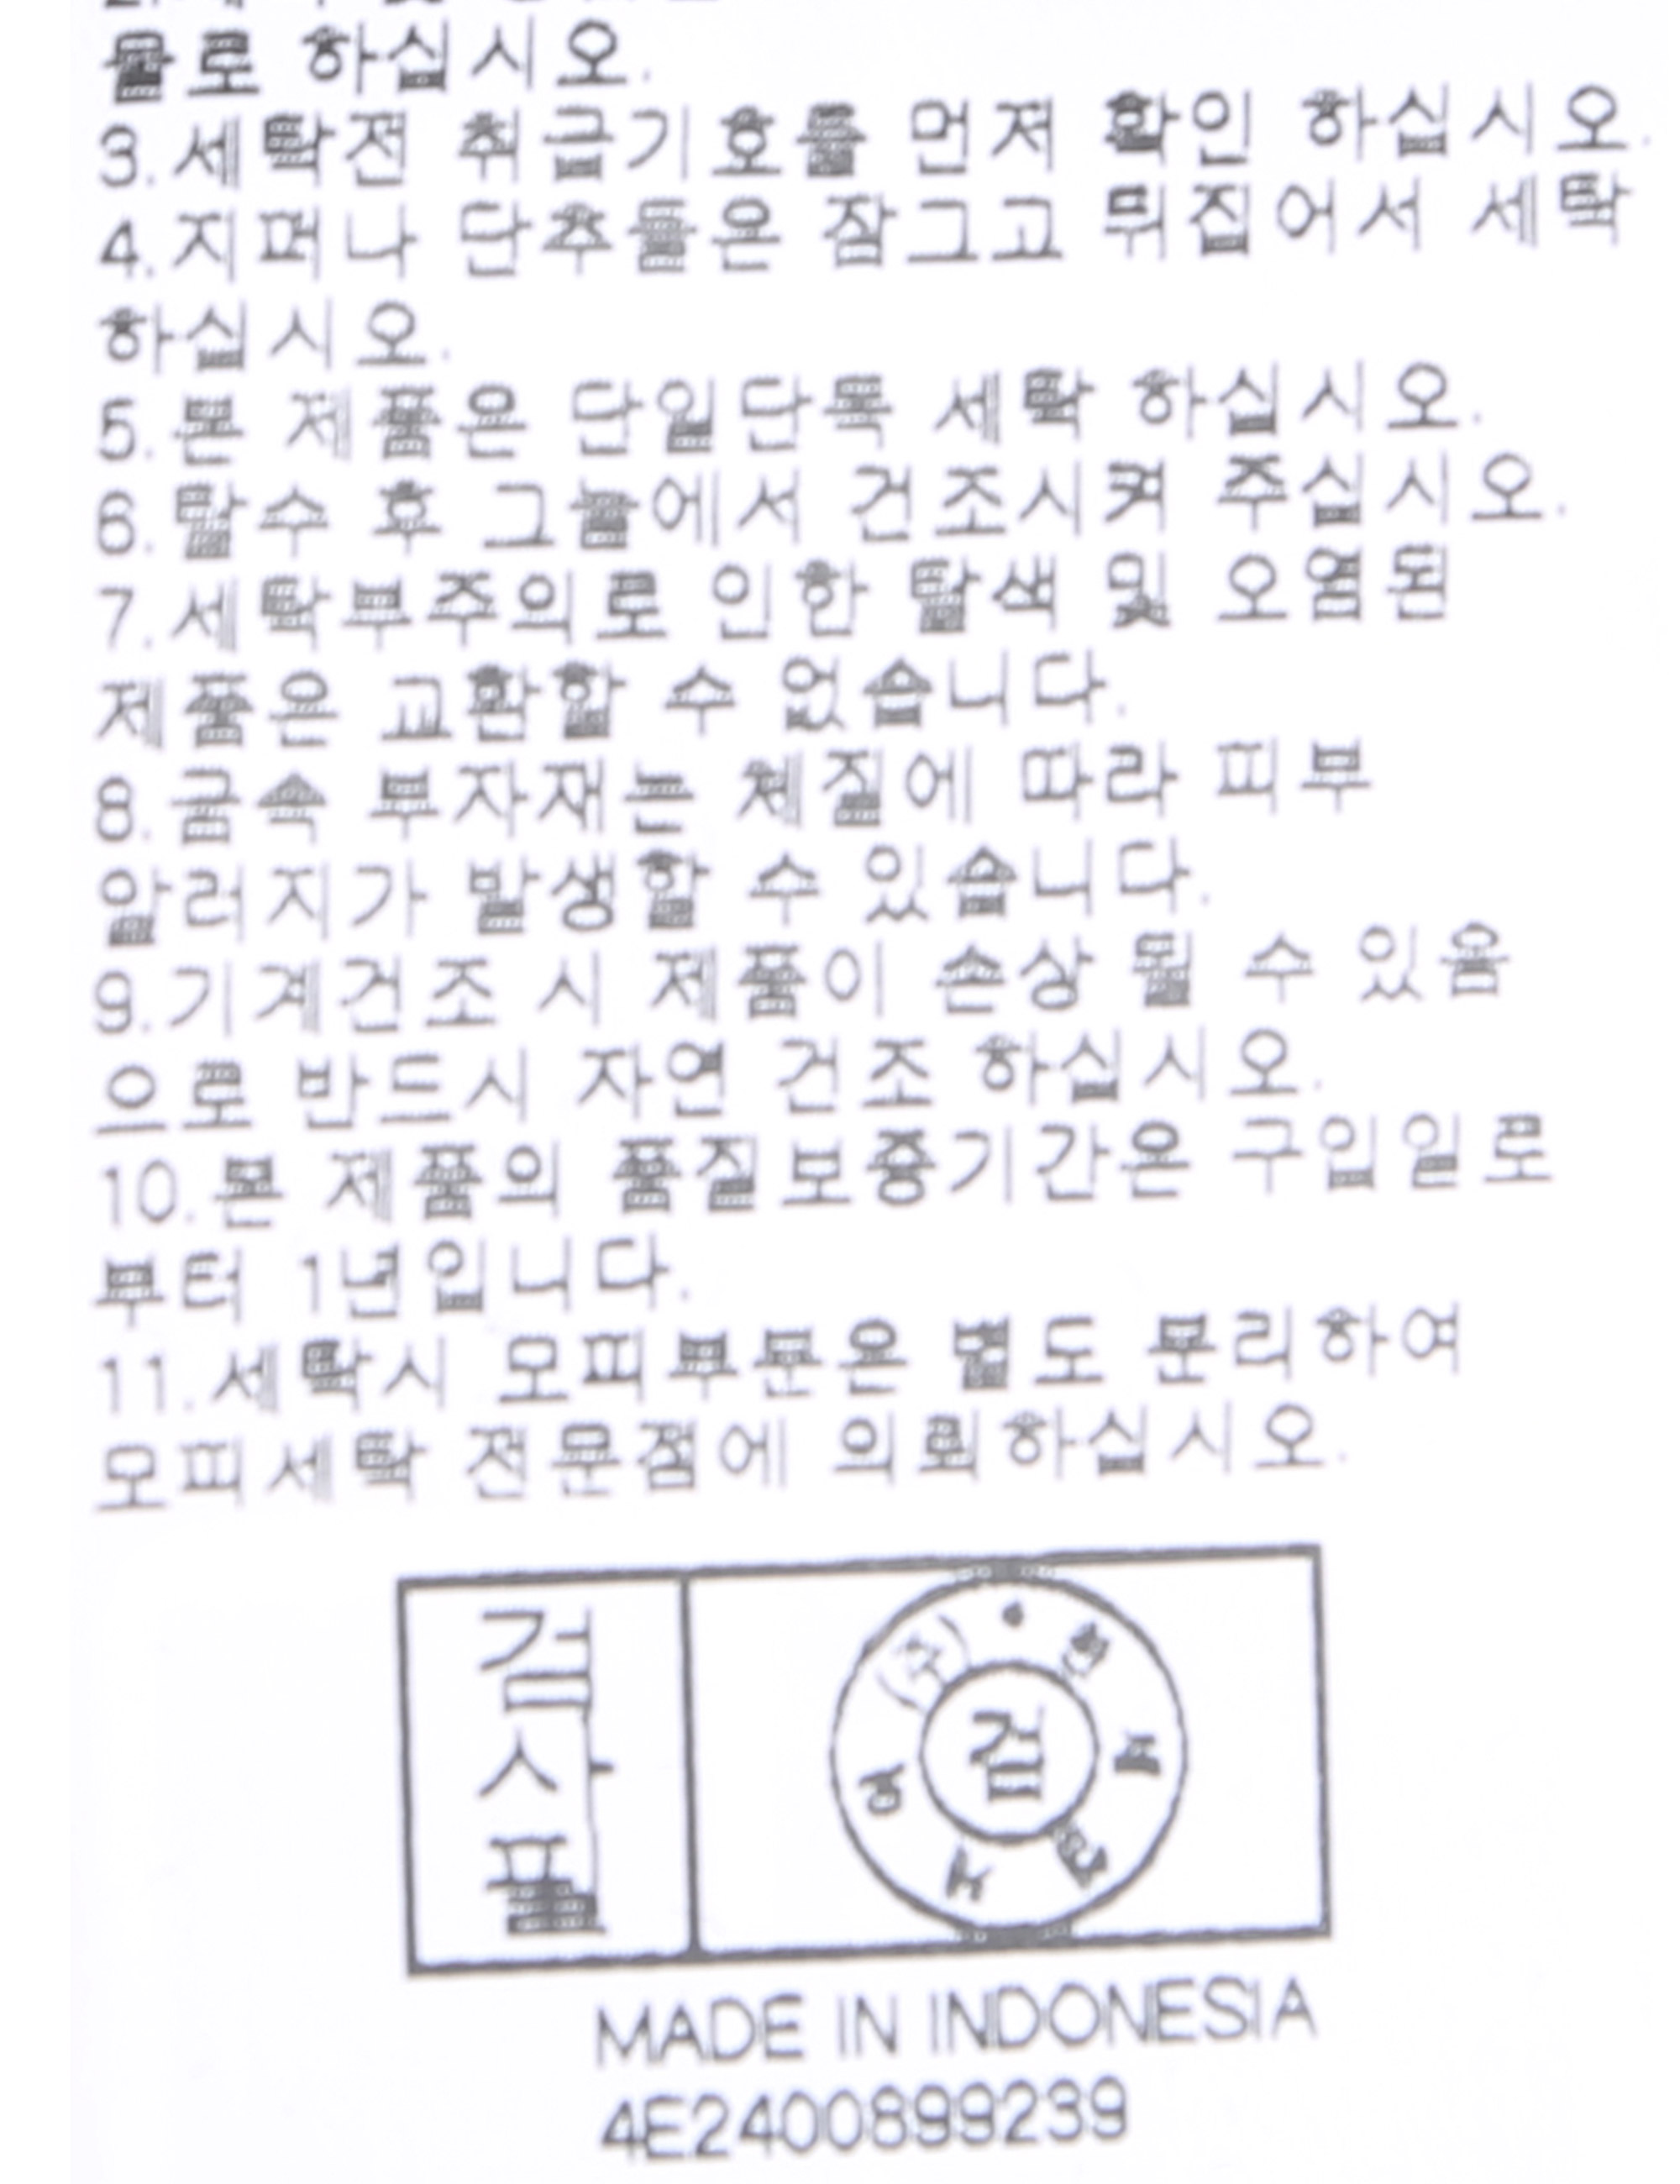 물로 하십시오.
3.세탁전 취급기호를 먼저 확인 하십시오.
4.지퍼나 단추들은 잠그고 뒤집어서 세탁
하십시오.
5.본 제품은 단일단독 세탁 하십시오.
6.탈수 후 그늘에서 건조시켜 주십시오.
7.세탁부주의로 인한 탈색 및 오염된
제품은 교환할 수 없습니다.
8.금속 부자재는 체질에 따라 피부
알러지가 발생할 수 있습니다.
9.기계건조 시 제품이 손상 될 수 있음
으로 반드시 자연 건조 하십시오.
10.본 제품의 품질보증기간은 구입일로
부터 1년입니다.
11.세탁시 모피부분은 별도 분리하여
모피세탁 전문점에 의뢰하십시오.
검
사
필
(주)
검
MADE IN INDONESIA
4E2400899239